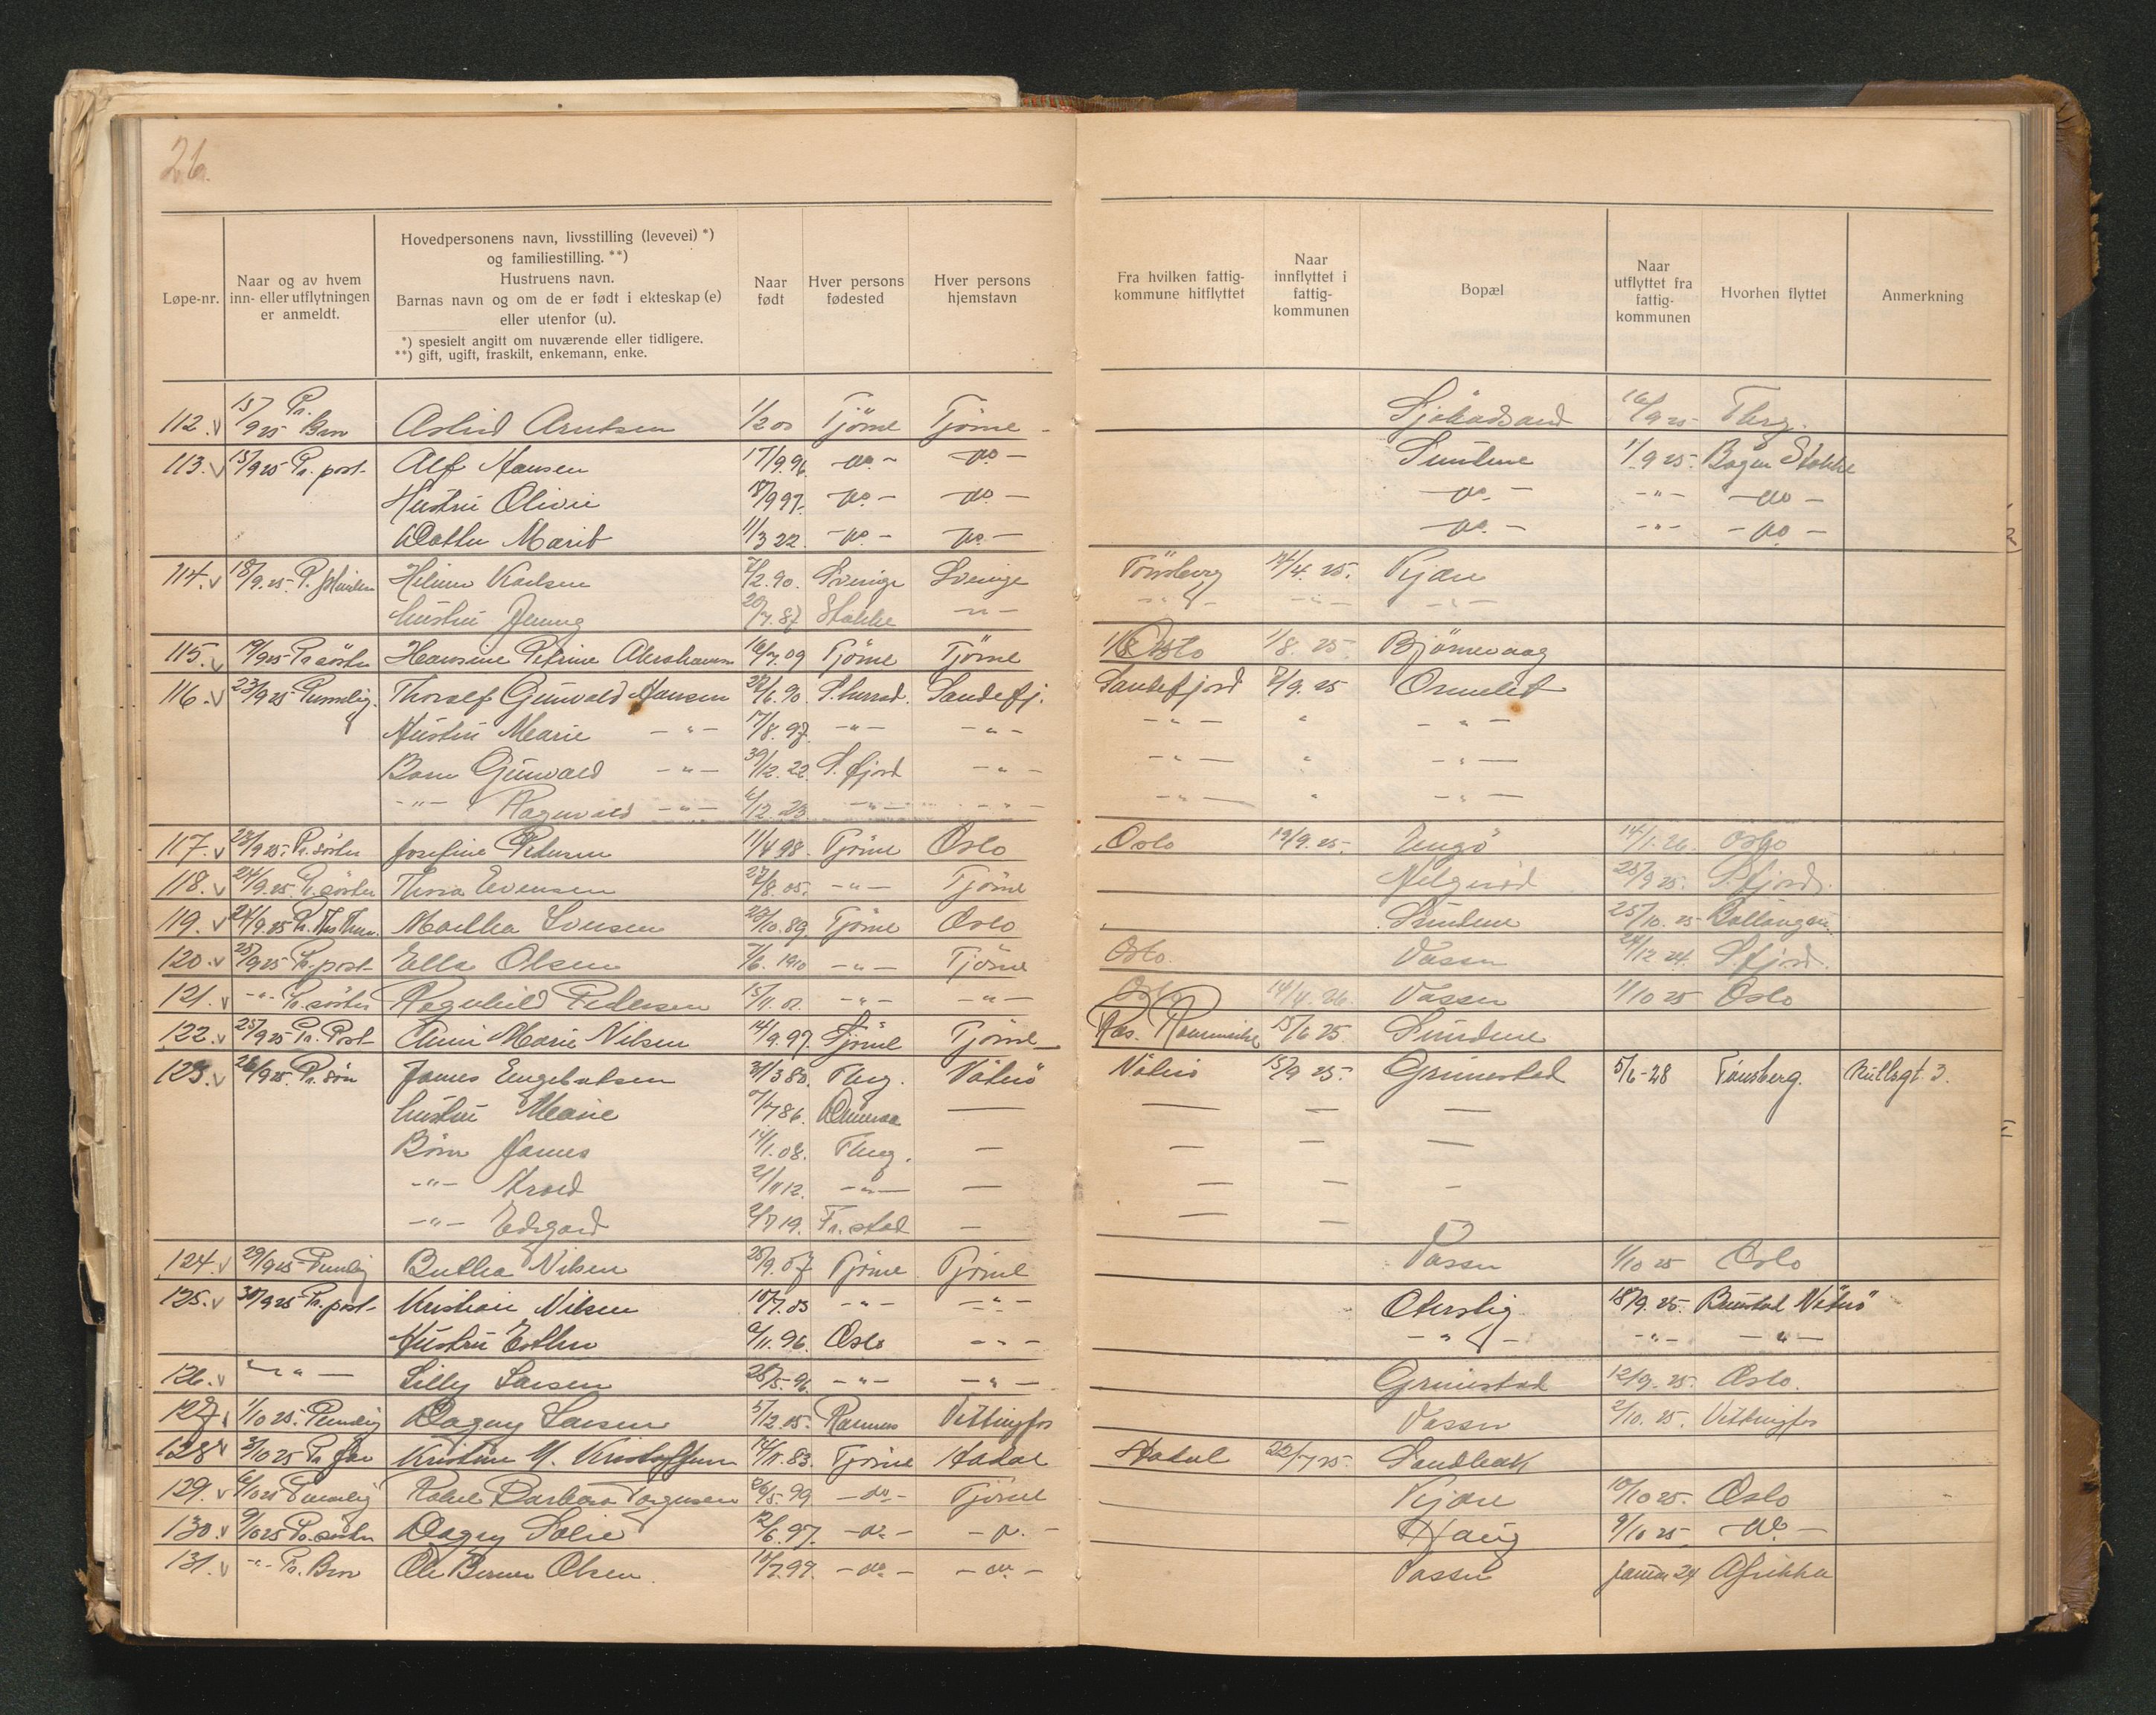 26.
Løpe-nr. | Naar og av hvem inn- eller utflytningen er anmeldt. | Hovedpersonens navn, livsstilling (levevei) *) og familiestilling. **) Hustruens navn. Barnas navn og om de er født i ekteskap (e) eller utenfor (u). *) spesielt angitt om nuværende eller tidligere. **) gift, ugift, fraskilt, enkemann, enke. | Naar født | Hver persons fødested | Hver persons hjemstavn | Fra hvilken fattigkommune hitflyttet | Naar innflyttet i fattigkommunen | Bopæl | Naar utflyttet fra fattigkommunen | Hvorhen flyttet | Anmerkning
112. v 15/9 25 Pr. Bror Astrid Arntsen 1/2 00 Tjöme Tjöme 16/9 25 Tbrg.
113. v 15/9 25 Pr. post Alf Hansen 17/9 96 - do - - do - Sundene 1/9 25 Bogen Stokke
Hustru Olivie 18/9 97. - do - - do - - do - - " - - do -
Datter Marit 11/3 22. - do - - do - - do - - " - - do -
114. v 18/9. 25 P. Hilmer Karlsen /2. 90. Sverige Sverige Tönsberg 14/4. 25. Kjære
hustru Jenny 20/7. 87 Stokke - " - - " - - " - - " -
115. v 19/9 25 Pr söster Hansine Petrine Abrahamsen 16/7. 09 Tjöme Tjöme Oslo 1/8. 25 Björnevaag
116. v 23/9 25 Personlig. Thoralf Gunvald Hansen 22/6. 90. S.herred. Sandefj. Sandefjord /9. 25 Ormelet
Hustru Marie - " - 17/8. 97. - " - - " - - " - " - " -
Barn Gunvald - " - 30/12. 22. S. fjord - " - - " - " - " -
- " - Ragnvald - " - 6/12. 23 - " - - " - - " - " - " -
117. v 23/9 25. Pr. söster Josefine Pedersen 11/4 98. Tjöme Oslo Oslo 19/9. 25. Engö 14/1. 26. Oslo
118. v 24/9. 25. Pr. söster Thora Evensen 27/8. 05. - " - Tjöme Helgerød 25/9 25. S.fjord.
119. v 24/9. 25 Pr. Martha Iversen 23/10. 89. Tjöme Oslo Sundene 25/10. 25 Ballangen
120. v 25/9 25 Pr. post Ella Olsen 7/6. 1910 - " - Tjöme Oslo. Vasser 24/12. 24. S.fjord.
121. v - " - Pr. söster Ragnhild Pedersen 15/11. 01. - " - - " - Oslo 14/4. 26. Vasser 1/10 25 Oslo
122. v 25/9 25 Pr. Post Anni Marie Nilsen 14/9. 97. Tjöme Tjöme Ras. Romerike 15/6 25. Sundene
123. v 26/9 25. Pr. sön James Engebretsen 31/3 80. Tbrg. Nøtterö Nøtterö 15/9 25. Grimestad 5/6-28 Tönsberg. Kullsgt. 3.
hustru Marie /7 86. — — — —
Börn James 14/1. 08. Tbrg. — — — —
- " - Arvid 2/11 12. - " - — — — —
- " - Edgard 2/7 19. Fr. stad — — —
124. v 29/9 25 Personlig Bertha Nilsen 25/9. 07 Tjöme Tjöme Vasser 1/10 25 Oslo
125. v 30/9 25 Pr. post Kristian Nilsen 10/7. 03 - " - - " - Oterstig 18/9. 25. Buestad Nøtterö
Hustru Esther 9/11. 96. Oslo - " - - " - - " - - " -
126. v - " - Lilly Larsen 28/5. 96. - " - - " - Grimestad 12/9. 25. Oslo.
127. v 1/10 25. Personlig Dagny Larsen 5/12. 05. Ramnes Vittingfos Vasser 2/10. 25. Vittingfos
128 v 3/10 25 Pr far Kristine M. Kristoffersen 14/11. 83. Tjöme Aadal Aadal 22/7 25. Sandbæk
129. v 6/10 25 Personlig Rakel Barbara Torgersen 26/5. 99 - do - Tjöme Kjære 10/10 25. Oslo
130. v 9/10 25 Pr. söster Dagny Solie 12/6. 97. - do - - do - Haug 9/10 25 - do -
131. v - " - Pr. Bror Ole Berner Olsen. 10/7. 99. - do - - do - Vasser Januar 24 Afrikka